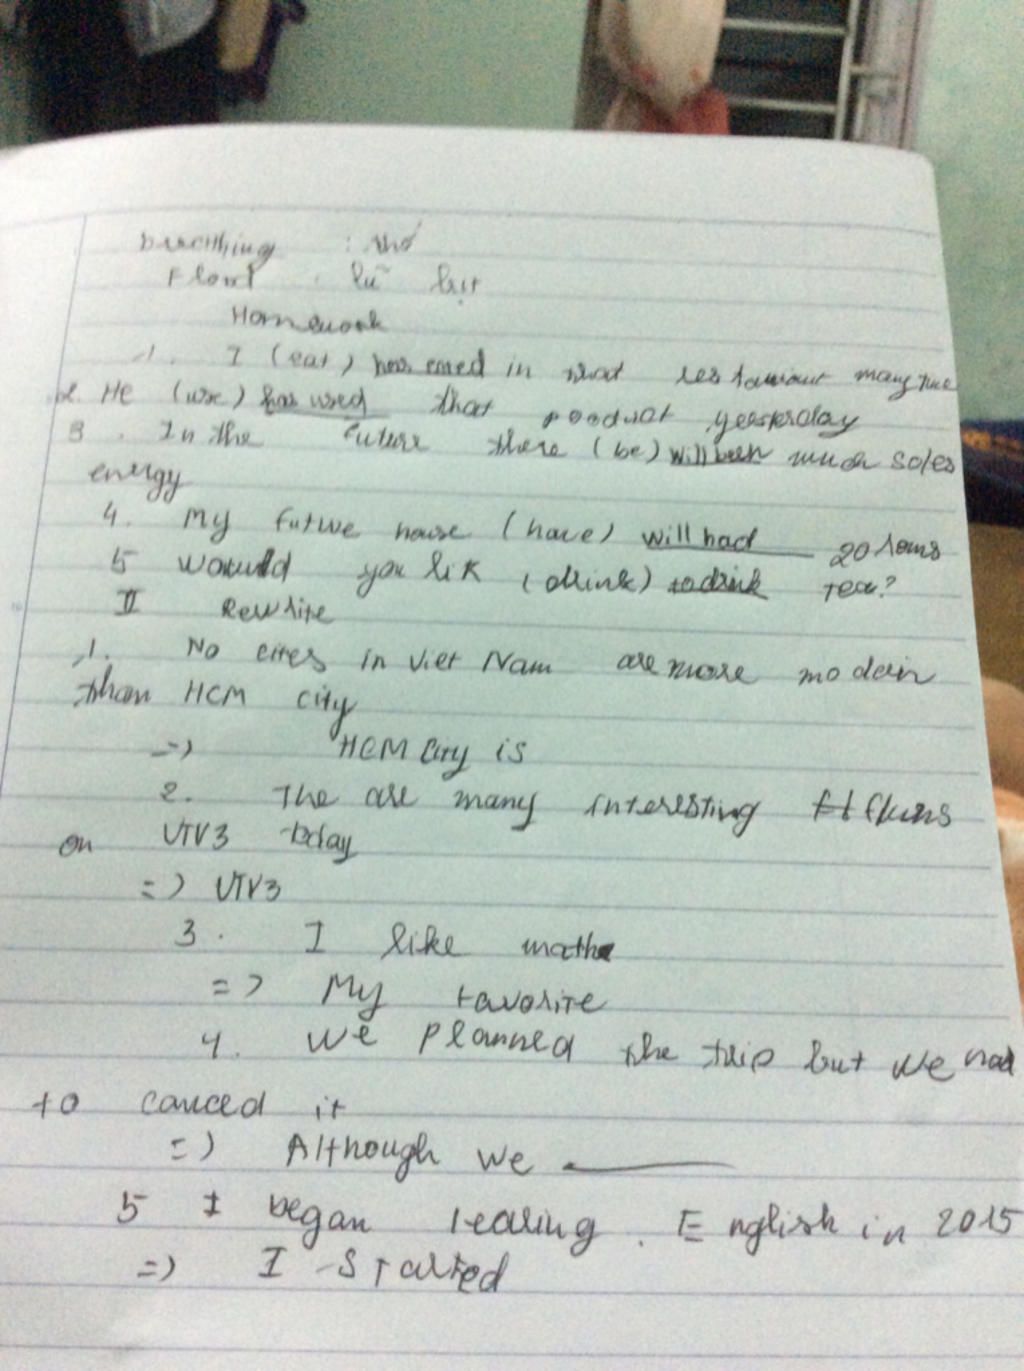 breathing : thở
Flowt : lũ lụt
Homework
1. I (eat) has eaed in that restauraut many time
2. He (use) has used that product yeesterday
3. In the future there (be) will been much soles
energy
4. My future house (have) will had 20 roms
5 would you lik (drink) to drink tea?
II Rewrite
1. No cites in Viet Nam are more modern
than HCM city
=> HCM City is
2. The are many interesting films
on VTV3 today
=> VTV3
3. I like math
=> My favorite
4. We planned the trip but we had
to canced it
=> Although we
5 I began learing English in 2015
=> I started